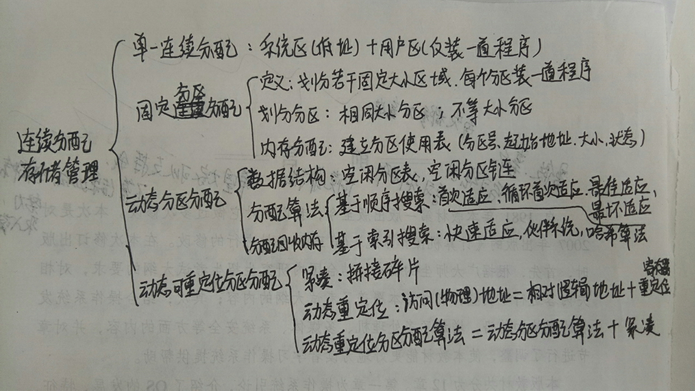 单一连续分配：系统区(低址)+用户区(仅装一道程序)
固定分区分配
定义：划分若干固定大小区域，每个分区装一道程序
划分分区：相同大小分区；不等大小分区
内存分配：建立分区使用表(分区号,起始地址,大小,状态)
连续分配
存储管理
动态分区分配
数据结构：空闲分区表，空闲分区链
分配算法
基于顺序搜索：首次适应，循环首次适应，最佳适应，
最坏适应
基于索引搜索：快速适应，伙伴系统，哈希算法
分配回收内存
动态可重定位分区分配
紧凑：拼接碎片
动态重定位：访问(物理)地址=相对(逻辑)地址+重定位
寄存器
动态重定位分区分配算法=动态分区分配算法+紧凑